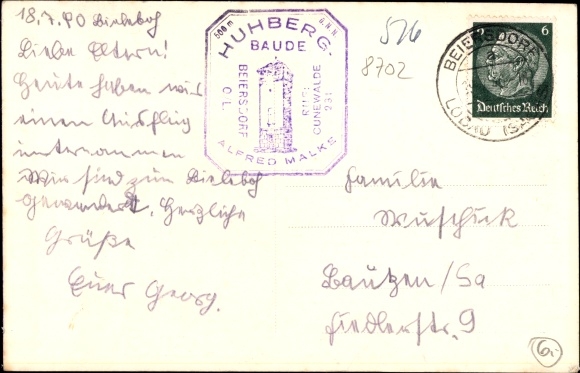 18.7.40 Bieleboh
Liebe Eltern!
Heute haben wir
einen Ausflug
unternommen
Wir sind zum Bieleboh
gewandert. Herzliche
Grüße
Euer Georg.
500 m ü.N.N.
HUHBERG
BAUDE
BEIERSDORF
O.L.
RUF:
CUNEWALDE
291
ALFRED MALKS
526
8702
BEIERSDORF
LÖBAU (SACHS)
6
Deutsches Reich
Familie
Wuschick
Bautzen/Sa
Fiedlerstr. 9
6.-